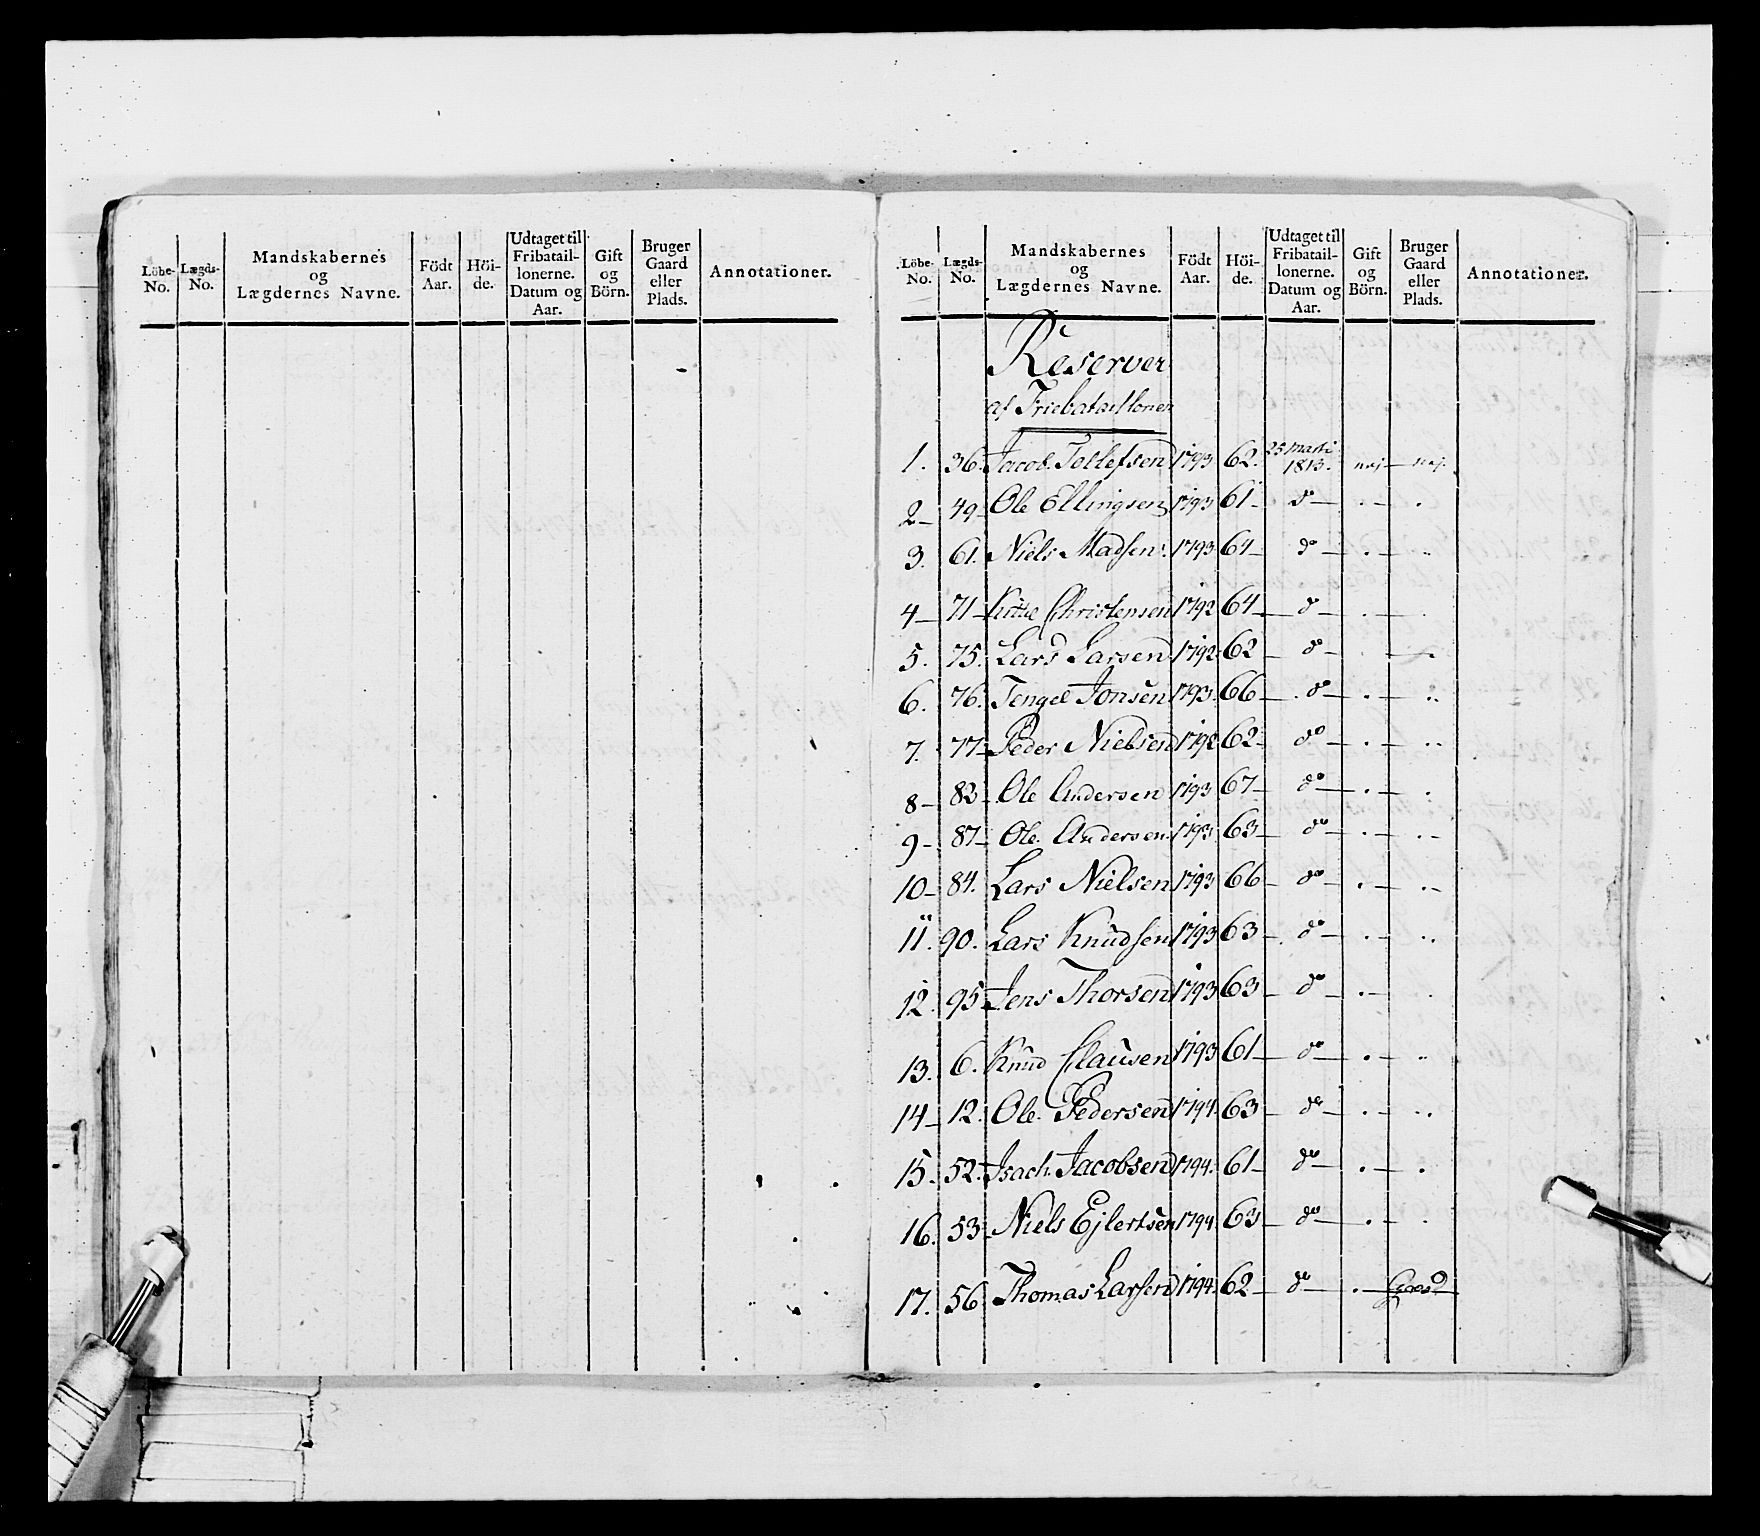 Löbe-No. Lægds-No. Mandskabernes og Lægdernes Navne. Födt Aar. Höi-de. Udtaget til Fribatail-lonerne. Datum og Aar. Gift og Börn. Bruger Gaard eller Plads. Annotationer.
Löbe-No. Lægds-No. Mandskabernes og Lægdernes Navne. Födt Aar. Höi-de. Udtaget til Fribatail-lonerne. Datum og Aar. Gift og Börn. Bruger Gaard eller Plads. Annotationer.
Reserver
af Friebataillonen
1. 36. Jacob Tollefsen 1793 62. 25 Marti 1813. nej — nej.
2 — 49 — Ole Ellingsen 1793 61 — do —
3. 61. Niels Madsen 1793 64 — do —
4 — 71 — Kittel Christensen 1792 64 — do —
5. 75. Lars Larsen 1792 62 — do —
6. 76. Tengel Jonsen 1793. 66 — do —
7. 77 — Peder Nielsen 1792 62 — do —
8 — 83 — Ole Andersen 1793 67 — do —
9 — 87 — Ole Andersen 1793 63 — do —
10 — 84. Lars Nielsen 1793 66 — do —
11. 90. Lars Knudsen 1793 63 — do —
12. 95 Jens Thorsen 1793 63 — do —
13. 6. Knud Clausen 1793 61 — do —
14 — 12. Ole Pedersen 1794 63 — do —
15. 52. Isach Jacobsen 1794. 61 — do —
16. 53 — Niels Ejlertsen 1794 63 — do —
17. 56. Thomas Larsen 1794. 62 — do —